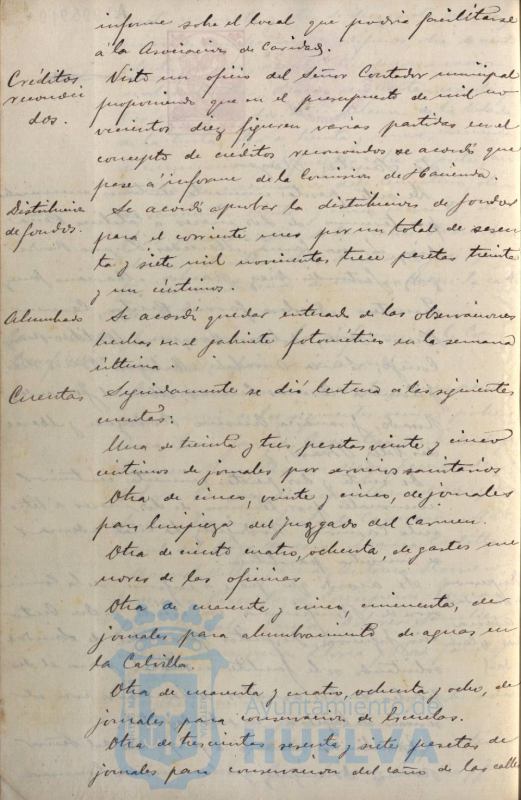 informe sobre el local que podria facilitarse
á la Asociacion de Caridad.
Créditos
reconoci
dos.
Visto un oficio del Señor Contador municipal
proponiendo que en el presupuesto de mil no
vecientos diez figuren varias partidas en el
concepto de créditos reconocidos se acordó que
pase á informe de la Comision de Hacienda.
Distribucion
de fondos.
Se acordó aprobar la distribucion de fondos
para el corriente mes por un total de sesen
ta y siete mil novecientas trece pesetas treinta
y un céntimos.
Alumbrado
Se acordó quedar enterado de las observaciones
hechas en el gabinete fotométrico en la semana
última
Cuentas
Seguidamente se dió lectura á las siguientes
cuentas:
Una de treinta y tres pesetas veinte y cinco
céntimos de jornales por servicios sanitarios
Otra de cinco, veinte y cinco, de jornales
para limpieza del juzgado del Carmen.
Otra de ciento cuatro, ochenta, de gastos me
nores de las oficinas
Otra de cuarenta y cinco, cincuenta, de
jornales para alumbramiento de aguas en
la Calvilla.
Otra de cuarenta y cuatro, ochenta y ocho, de
jornales para conservacion de Escuelas.
Otra de trescientas sesenta y siete pesetas de
jornales para conservacion del caño de las calles
Ayuntamiento de
HUELVA